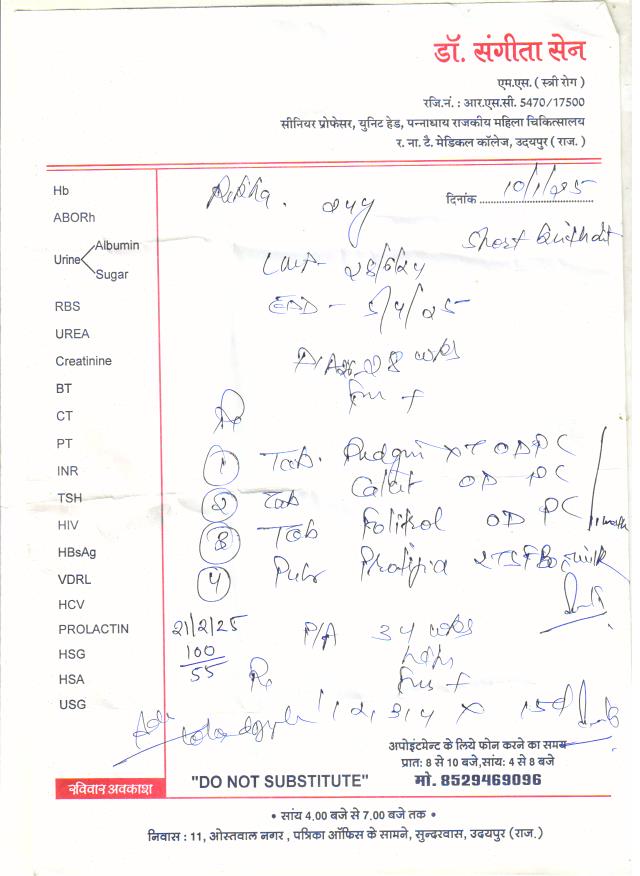 डॉ. संगीता सेन
एम.एस. ( स्त्री रोग )
रजि.नं. : आर.एस.सी. 5470/17500
सीनियर प्रोफेसर, युनिट हेड, पन्नाधाय राजकीय महिला चिकित्सालय
र. ना. टै. मेडिकल कॉलेज, उदयपुर ( राज. )
दिनांक 10/1/25
Hb
ABORh
Urine Albumin
Sugar
RBS
UREA
Creatinine
BT
CT
PT
INR
TSH
HIV
HBsAg
VDRL
HCV
PROLACTIN
HSG
HSA
USG
Rekha. 24y
Short
LMP - 28/6/24
EDD - 5/4/25
P/A 28 wks
FHS +
Rx
1 Tab. XT OD PC
2 Tab OD PC
3 Tab OD PC
1 month
4 2TSF BD milk
21/2/25
100
55
P/A 34 wks
FHS +
Rx
1, 2, 3, 4 x 15d
अपोइंटमेन्ट के लिये फोन करने का समय
प्रात: 8 से 10 बजे,सांय: 4 से 8 बजे
मो. 8529469096
रविवार अवकाश
"DO NOT SUBSTITUTE"
• सांय 4.00 बजे से 7.00 बजे तक •
निवास : 11, ओस्तवाल नगर , पत्रिका ऑफिस के सामने, सुन्दरवास, उदयपुर (राज.)